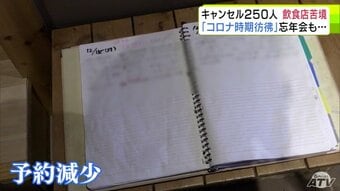 キャンセル250人 飲食店苦境
「コロナ時期彷彿」忘年会も…
予約減少
ATV